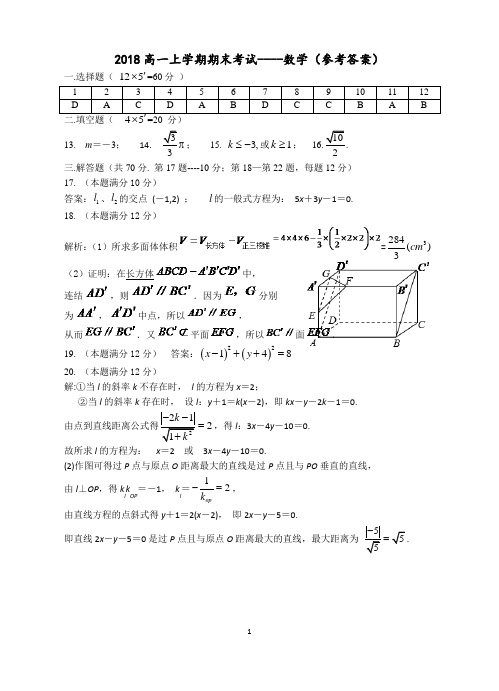 2018高一上学期期末考试----数学（参考答案）
一.选择题（ 12×5′=60分 ）
1 2 3 4 5 6 7 8 9 10 11 12
D A C D A B D C C B A B
二.填空题（ 4×5′=20 分）
13. m＝－3； 14. √3/3 π； 15. k≤−3,或k≥1； 16. √10/2.
三.解答题（共 70 分. 第 17 题----10 分；第 18—第 22 题，每题 12 分）
17. （本题满分 10 分）
答案：l₁、l₂的交点 (－1,2) ； l的一般式方程为： 5x＋3y－1＝0.
18. （本题满分 12 分）
解析：（1）所求多面体体积V=V长方体−V正三棱锥=4×4×6−1/3×(1/2×2×2)×2=284/3(cm³)
（2）证明：在长方体ABCD−A'B'C'D'中，
连结AD'，则AD'∥BC'．因为E，G分别
为AA'，A'D'中点，所以AD'∥EG，
从而EG∥BC'．又BC'⊄平面EFG，所以BC'∥面EFG
D' C' G F A' B' E D C A B
19. （本题满分 12 分） 答案：(x−1)²+(y+4)²=8
20. （本题满分 12 分）
解:①当 l 的斜率 k 不存在时， l 的方程为 x＝2；
②当 l 的斜率 k 存在时， 设 l：y＋1＝k(x－2)，即 kx－y－2k－1＝0.
由点到直线距离公式得|−2k−1|/√1+k²=2，得 l：3x－4y－10＝0.
故所求 l 的方程为： x＝2 或 3x－4y－10＝0.
(2)作图可得过 P 点与原点 O 距离最大的直线是过 P 点且与 PO 垂直的直线，
由 l⊥OP，得 k_l k_OP＝－1， k_l＝−1/k_op=2，
由直线方程的点斜式得 y＋1＝2(x－2)， 即 2x－y－5＝0.
即直线 2x－y－5＝0 是过 P 点且与原点 O 距离最大的直线，最大距离为 |−5|/√5=√5.
1